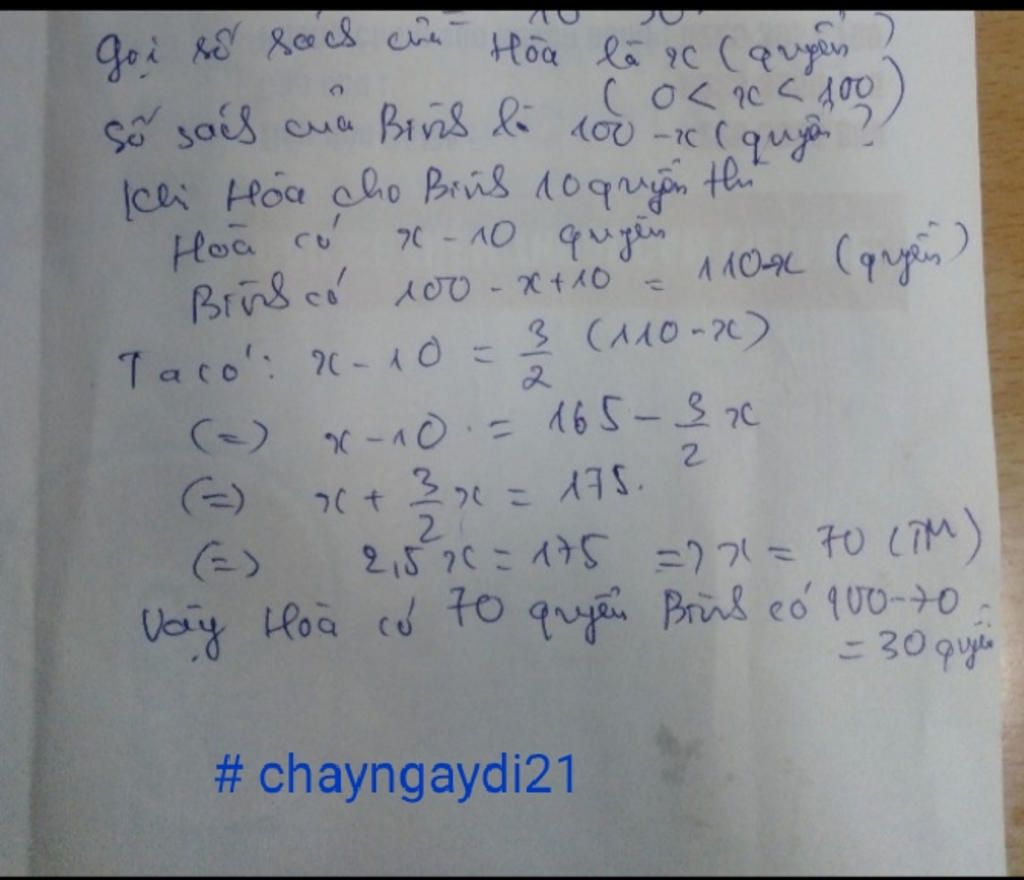 Gọi số sách của Hòa là x (quyển)
(0 < x < 100)
Số sách của Bình là 100 - x (quyển)
Khi Hòa cho Bình 10 quyển thì
Hòa có x - 10 quyển
Bình có 100 - x + 10 = 110 - x (quyển)
Ta có: x - 10 = 3/2 (110 - x)
(=) x - 10 = 165 - 3/2 x
(=) x + 3/2 x = 175.
(=) 2,5 x = 175 => x = 70 (TM)
Vậy Hòa có 70 quyển Bình có 100 - 70
= 30 quyển
# chayngaydi21